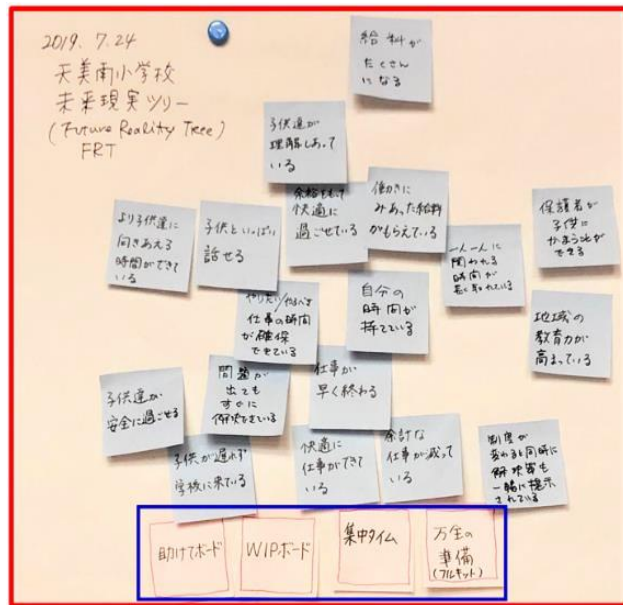 2019. 7.24
天美南小学校
未来現実ツリー
(Future Reality Tree)
FRT
給料が
たくさん
になる
子供達が
理解しあって
いる
余裕をもって
快適に
過ごせている
働きに
みあった給料
がもらえている
より子供達に
向きあえる
時間ができて
いる
子供といっぱい
話せる
一人一人に
関われる
時間が
長く取れている
保護者が
子供に
かまうことが
できる
やりたい/やるべき
仕事の時間
が確保
できている
自分の
時間が
持てている
地域の
教育力が
高まっている
子供達が
安全に過ごせる
問題が
出ても
すぐに
解決できている
仕事が
早く終わる
子供が遅れず
学校に来ている
快適に
仕事ができて
いる
余計な
仕事が減って
いる
制度が
変わると同時に
解決策も
一緒に提示
されている
助けてボード
WIPボード
集中タイム
万全の
準備
(フルキット)